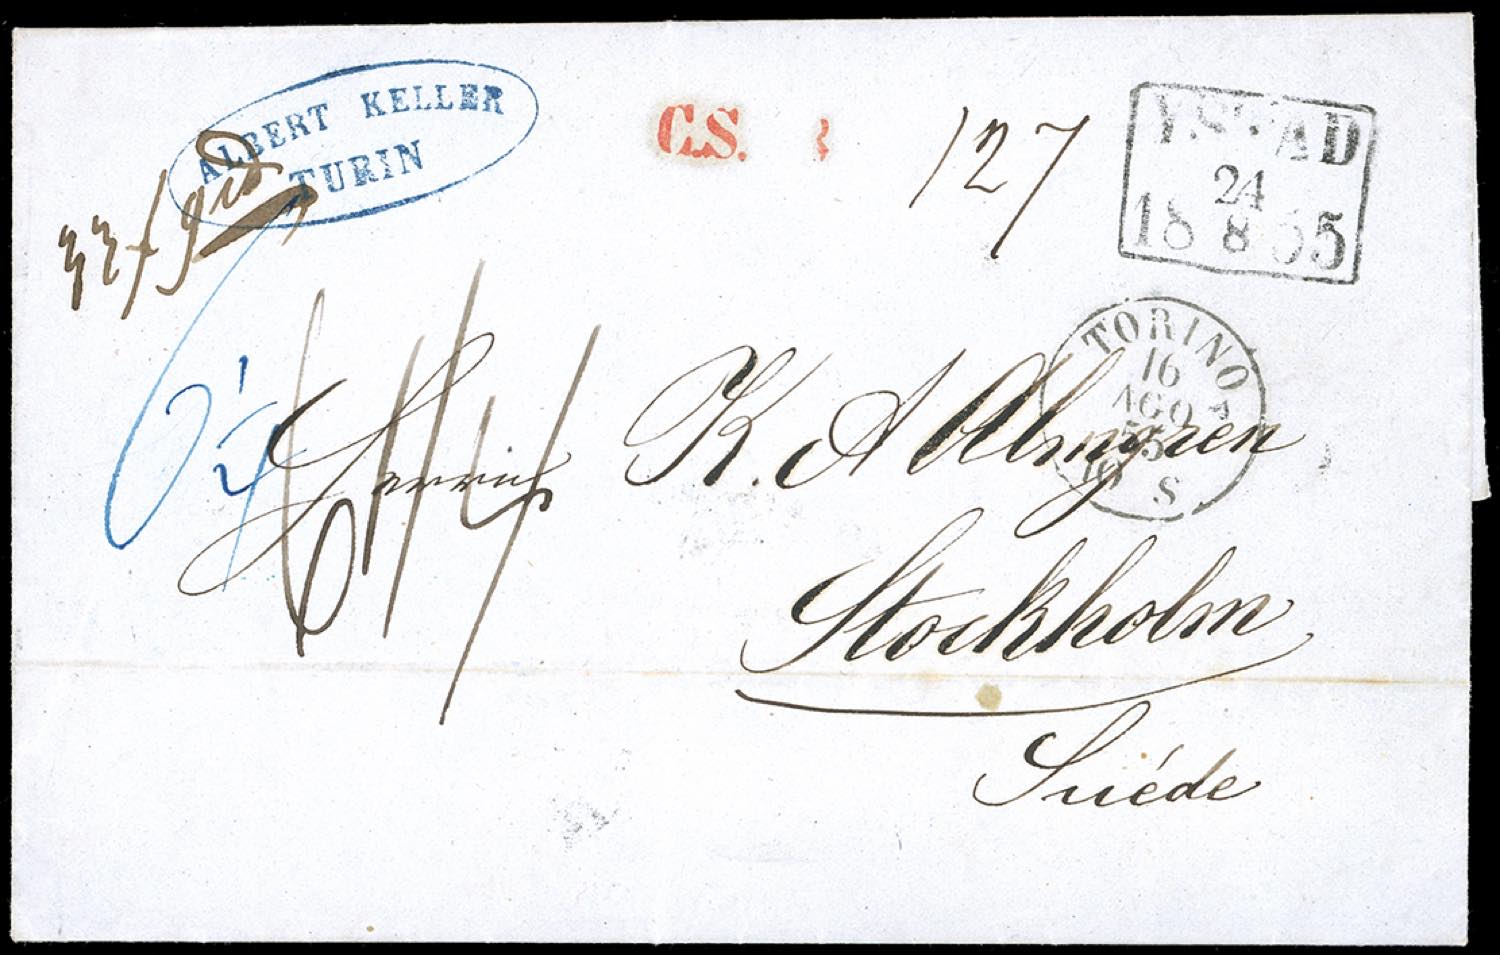 ALBERT KELLER
TURIN
C.S.
127
YSTAD
24
18 8 55
TORINO
16
AGO
55
S
Herrn K. A Almgren
Stockholm
Suéde